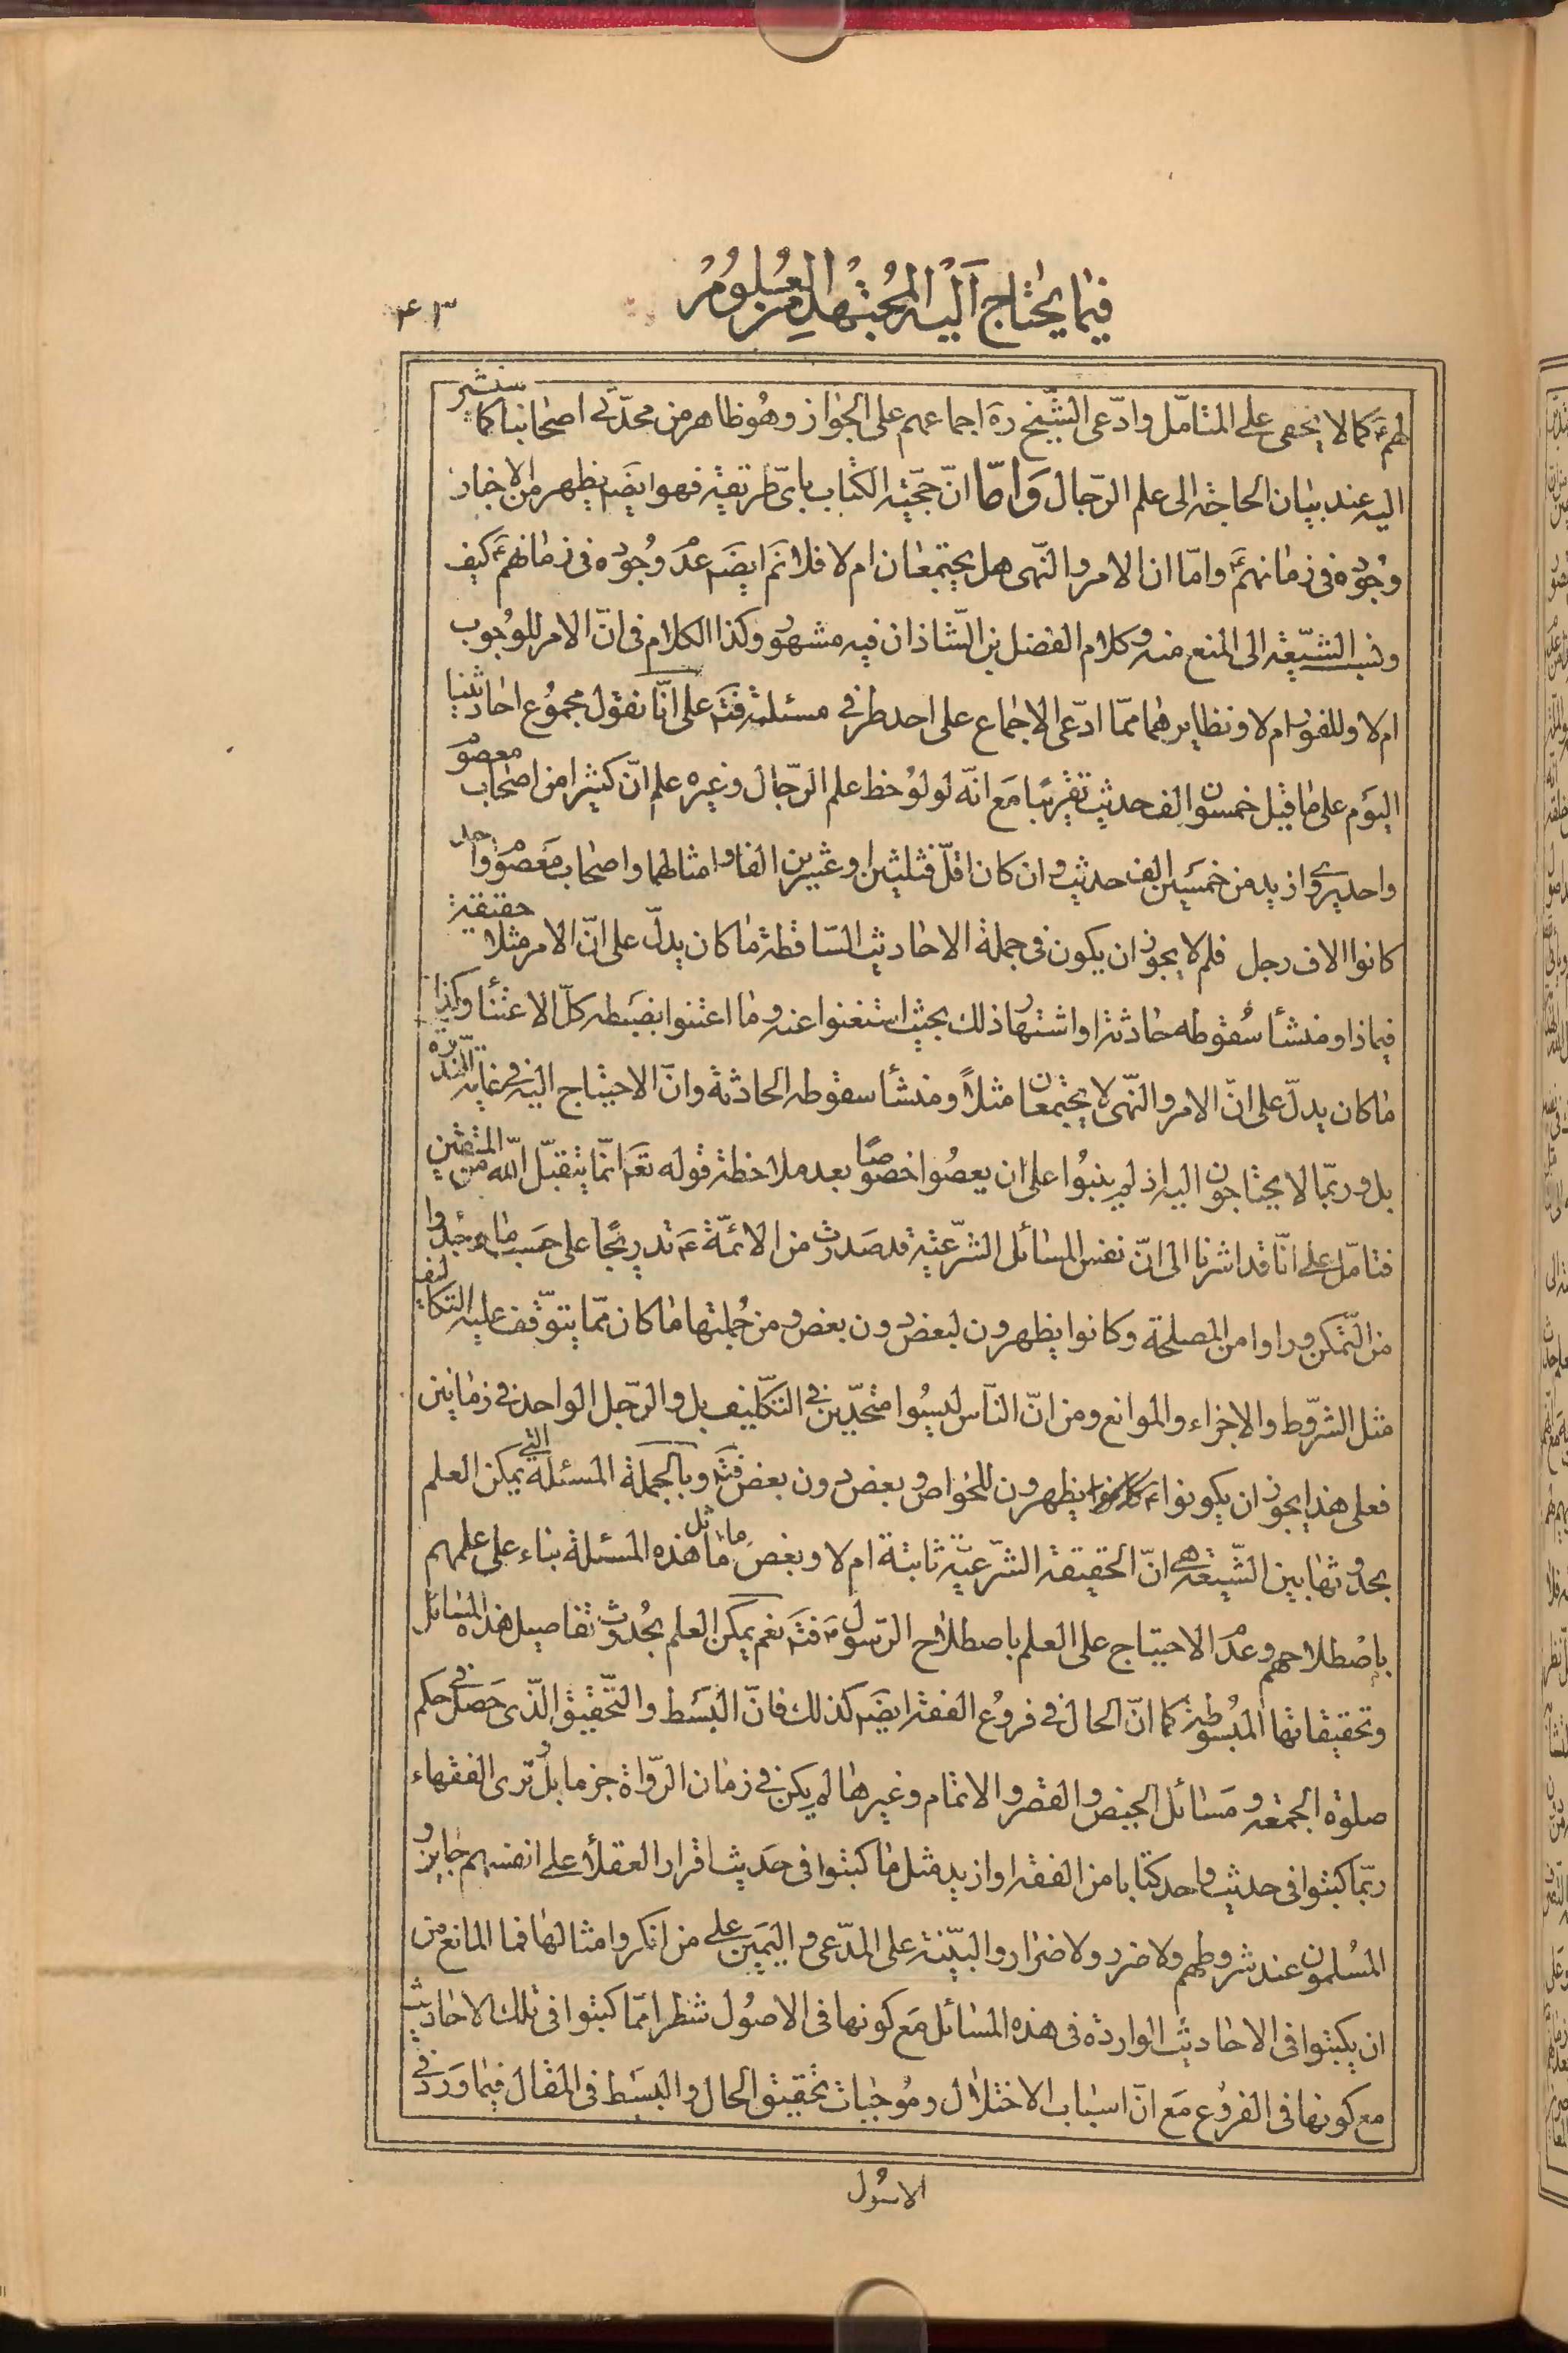 فيما يحتاج اليه المجتهد من العلوم
٤٣
لهم ع كما لا يخفى على المتامّل وادّعى الشّيخ ره اجماعهم على الجواز وهو ظاهر من محدّثى اصحابنا كما سنشير
اليه عند بيان الحاجة الى علم الرّجال وَامّا انّ حجّيته الكتاب باىّ طريقة فهو ايضَ يظهر من الاخبار
وجُوده فى زمانهم ع وامّا ان الامر والنّهى هل يجتمعان ام لا فلا نم ايضَ عدَم وجُوده فى زمانهم ع كيف
ونسب الشيّعة الى المنع منه وكلام الفضل بن الشّاذان فيه مشهور وكذا الكلام فى انّ الامر للوُجوب
ام لا وللفور ام لا ونظايرهما ممّا ادّعى الاجماع على احد طرفى مسئلة فتَم على انّا نقول مجمُوع احاديثنا
اليوَم على ما قيل خمسون الف حديث تقريبًا مَع انّه لو لوُحظ علم الرّجال وغيره علم انّ كثيرا من اصحاب معصوم
واحد يروى ازيد من خمسَين الف حديث وان كان اقلّ فثلثين او عشرين الفا وامثالهما واصحاب مَعصوم واحد
كانوا الاف رجل فلم لا يجوز ان يكون فى جملة الاحاديث السّاقطة ما كان يدلّ على انّ الامر مثلا حقيقة
فيماذا ومنشأ سُقوطه حادثة او اشتهار ذلك بحيث استغنوا عنه وما اعتنوا بضبَطه كلّ الاعتنأ وكذا
ما كان يدلّ على انّ الامر والنّهى لا يجتمعان مثلاً ومنشأ سقوطه الحادثة وانّ الاحتياج اليه فى غاية النّدرة
بل وربّما لا يحتاجون اليه اذ لم يبنُوا على ان يعصُوا خصُوصًا بعد ملاحظة قوله تعَ انّما يتقبّل الله من المتّقين
فتامّل على انّا قد اشرنا الى انّ نفس المسائل الشرّعيّة قد صَدرت من الائمّة ع تدريجًا على حسَب ما وجدُوا
من التّمكن وراوا من المصلحة وكانوا يظهرون لبعض دون بعض ومن جُملتها ما كان ممّا يتوّقف عليه التكاليف
مثل الشرّوط والاجزاء والموانع ومن انّ النّاس ليسُوا متّحدّين فى التكّليف بل والرّجل الواحد فى زمانين
فعلى هذا يجوز ان يكونوا ع كانوا يظهرون للخواص وبعض دون بعض فتَم وبالجملة المسئلة التى يمكن العلم
بحدُوثها بين الشّيعة هى انّ الحقيقة الشّرعيّة ثابتة ام لا وبعض ما ماثل هذه المسئلة بناء على علمهم
باصْطلاحهم وعدَم الاحتياج على العلم باصطلاح الرّسول ص فتَم نعم يمكن العلم بحُدوث تفاصيل هذه المسَائل
وتحقيقاتها المبسُوطة كما انّ الحال فى فروُع الفقه ايضَ كذلك فانّ البسَط والتّحقيق الّذى حَصل فى حكم
صلوة الجمعة ومسَائل الحيض والقصر والاتمام وغيرها لم يكن فى زمان الرّواة جزما بل وترى الفقهاء
ربّما كتبوا فى حديث واحد كتابا من الفقه او ازيد مثل ما كتبوا فى حَديث اقرار العقلأ على انفسهم جايز و
المسُلمون عند شروطهم ولا ضرر ولا ضرَار والبيّنة على المدّعى واليَمين على من انكر وامثالها فما المانع من
ان يكتبوا فى الاحاديث الواردة فى هذه المسَائل مَع كونها فى الاصُول شطرا ممّا كتبوا فى تلك الاحاديث
مع كونها فى الفروُع مَع انّ اسبَاب الاختلال ومُوجبات تحقيق الحال والبسَط فى المقال فيما وَرد فى
الاسُول